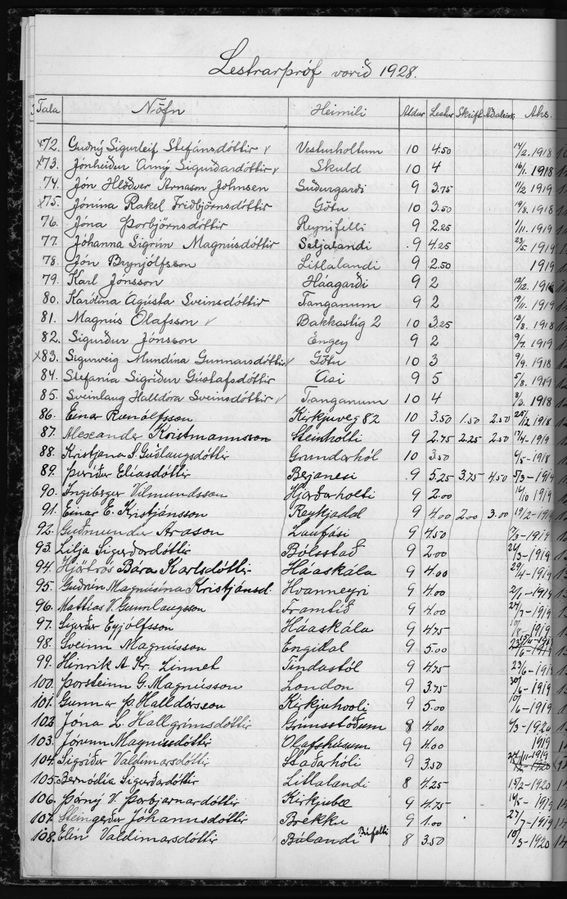 Lestrarpróf vorið 1928.
Tala Nöfn Heimili Aldur Lestur Skrift Aths.
x72. Guðný Sigurleif Stefánsdóttir Vesturholtum 10 4.50 14/2. 1918
x73. Jónheiður Árný Sigurðardóttir v Skuld 10 4 16/1. 1918
74. Jón Hlöðver Árnason Johnsen Suðurgarði 9 3.75 1/2 1919
x75. Jónína Rakel Friðbjörnsdóttir Götu 10 3.50 1918
76. Jóna Þorbjörnsdóttir Reynifelli 9 2.25 1/11. 1919
77. Jóhanna Sigrún Magnúsdóttir Seljalandi 9 4.25 1919
78. Jón Brynjólfsson Litlalandi 9 2.50 1919
79. Karl Jónsson Háagarði 9 2
80. Karólína Ágústa Sveinsdóttir Tanganum 9 2 1919
81. Magnús Ólafsson v Bakkastig 2 10 3.25 1918
82. Sigurður Jónsson Engey 9 2 1919
x83. Sigurveig Mundína Gunnarsdóttir v Götu 10 3 9/9. 1918
84. Stefanía Sigríður Gústafsdóttir Ási 9 5 5/8. 1919
85. Sveinlaug Halldóra Sveinsdóttir v Tanganum 10 4 1918
86. Einar Runólfsson Kirkjuveg 82 10 3.50 1.50 2.50 1918
87. Alexander Kristmannsson Steinholti 9 2.75 2.25 2.50 1919
88. Kristjana S. Guðlaugsdóttir Grundarhól 10 3.50 1918
89. Þuríður Elíasdóttir Bejanesi 9 5.25 3.75 4.50 1919
90. Ingiberger Vilmundsson Hjarðarholti 9 2.00 14/10 1919
91. Einar E. Kristjánsson Reykjadal 9 4.00 2.00 3.00
92. Guðmundur Arason Laufási 9 4.50 1919
93. Lilja Sigurðardóttir Bólestað 9 2.00 1919
94. Hjörtrós Bára Karlsdóttir Háaskála 9 4.00 29/4 - 1919
95. Guðrún Magnúsína Kristjánsd. Hvanneyri 9 4.00 1919
96. Mathías V. Gunnlaugsson Framtíð 9 4.00 24/7 - 1919
97. Sigurður Eyjólfsson Háaskála 9 4.75 1919
98. Sveinn Magnússon Engidal 9 5.00
99. Hinrik A. Kr. Linnet Tindastól 9 4.75 1919
100. Þorsteinn G. Magnússon London 9 3.75 1919
101. Gunnar Þ. Halldórsson Kirkjuhvoli 9 5.00 1919
102. Jóna L. Hallgrímsdóttir Grímsstöðum 8 4.00 1/3 - 1920
103. Jórunn Magnúsdóttir Ólafshúsum 9 4.00 1919
104. Sigríður Valdimarsdóttir Staðarhóli 9 3.50
105. Bernódía Sigurðardóttir Litlalandi 8 4.25 19/2 - 1920
106. Þórný V. Þorbjarnardóttir Kirkjubæ 9 4.75 1919
107. Steingerður Jóhannsdóttir Brekku 9 1.00 27/7 - 1919
108. Elín Valdimarsdóttir Bólandi Búfelli 8 3.50 10/3 - 1920